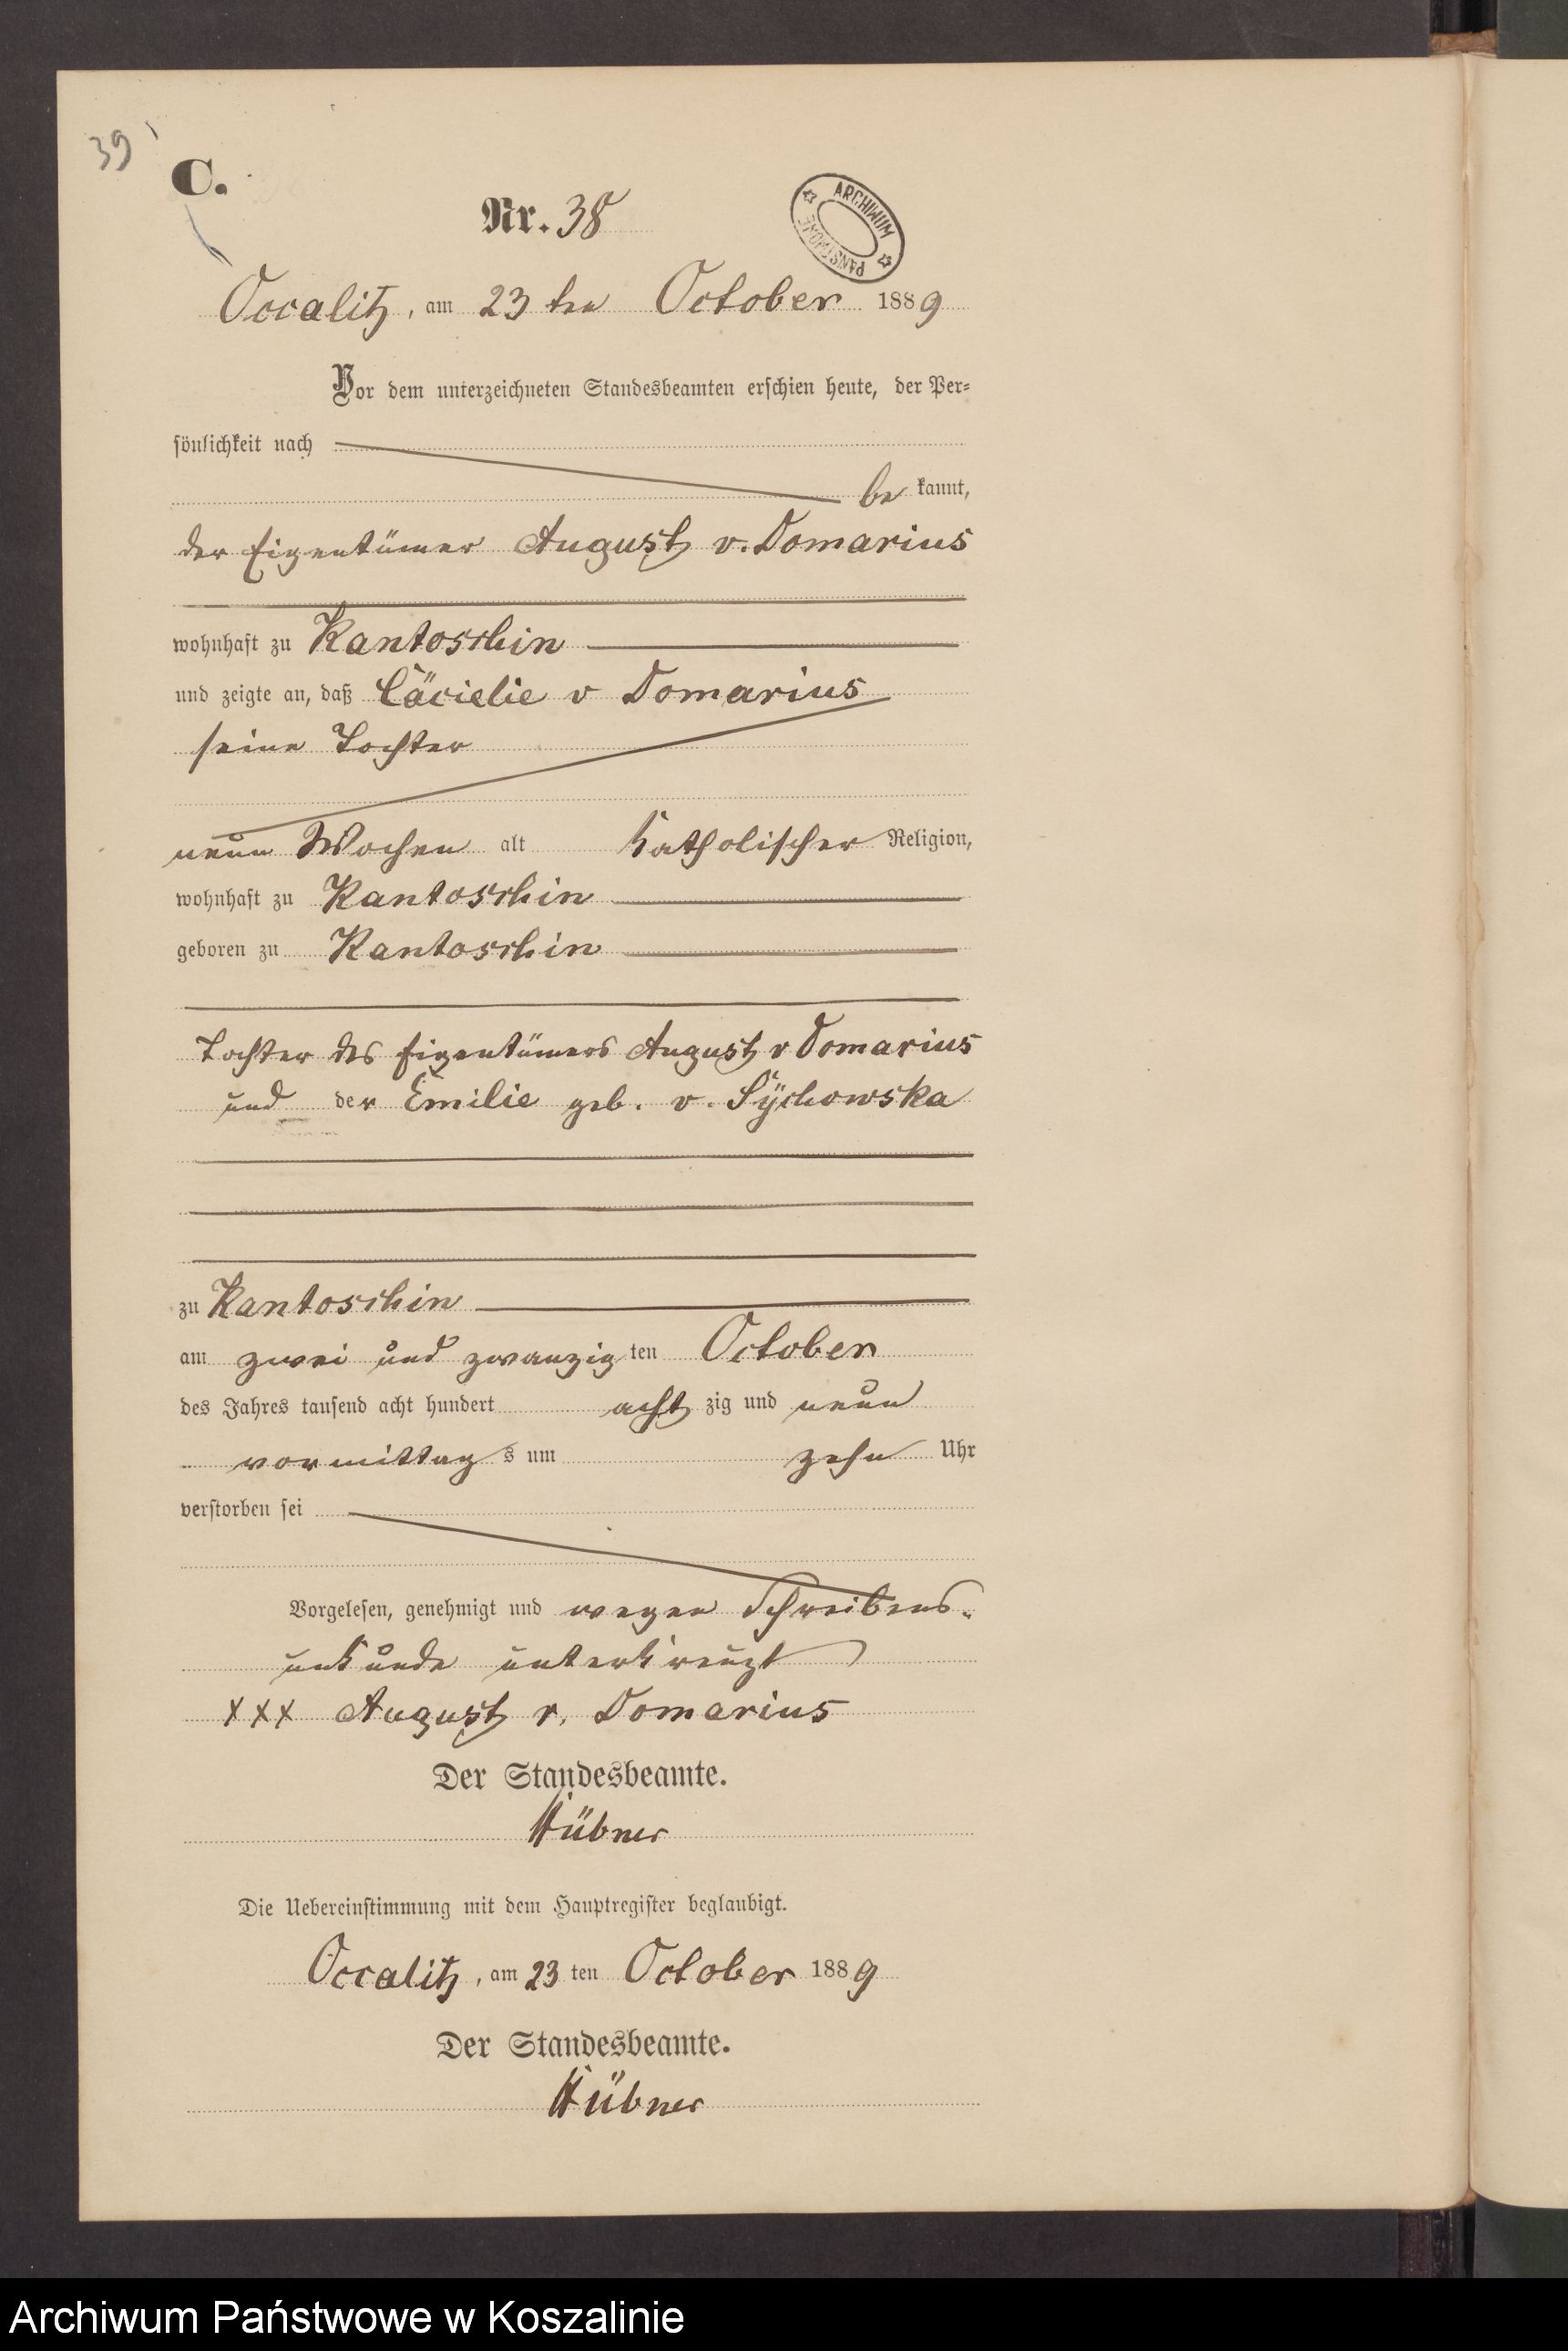 39
C.
Nr. 38
ARCHIWUM PAŃSTWOWE
Occalitz, am 23 ten October 1889
Vor dem unterzeichneten Standesbeamten erschien heute, der Per=
sönlichkeit nach
be kannt,
der Eigentümer August v. Domarius
wohnhaft zu Kantoschin
und zeigte an, daß Cäcielie v Domarius
seine Tochter
neun Wochen alt katholischer Religion,
wohnhaft zu Kantoschin
geboren zu Kantoschin
Tochter des Eigentümers August v Domarius
und der Emilie geb. v. Sÿchowska
zu Kantoschin
am zwei und zwanzig ten October
des Jahres tausend acht hundert acht zig und neun
vormittag s um zehn Uhr
verstorben sei
Vorgelesen, genehmigt und wegen Schreibens-
unkunde unterkreuzt
XXX August v. Domarius
Der Standesbeamte.
Hübner
Die Uebereinstimmung mit dem Hauptregister beglaubigt.
Occalitz, am 23 ten October 1889
Der Standesbeamte.
Hübner
Archiwum Państwowe w Koszalinie